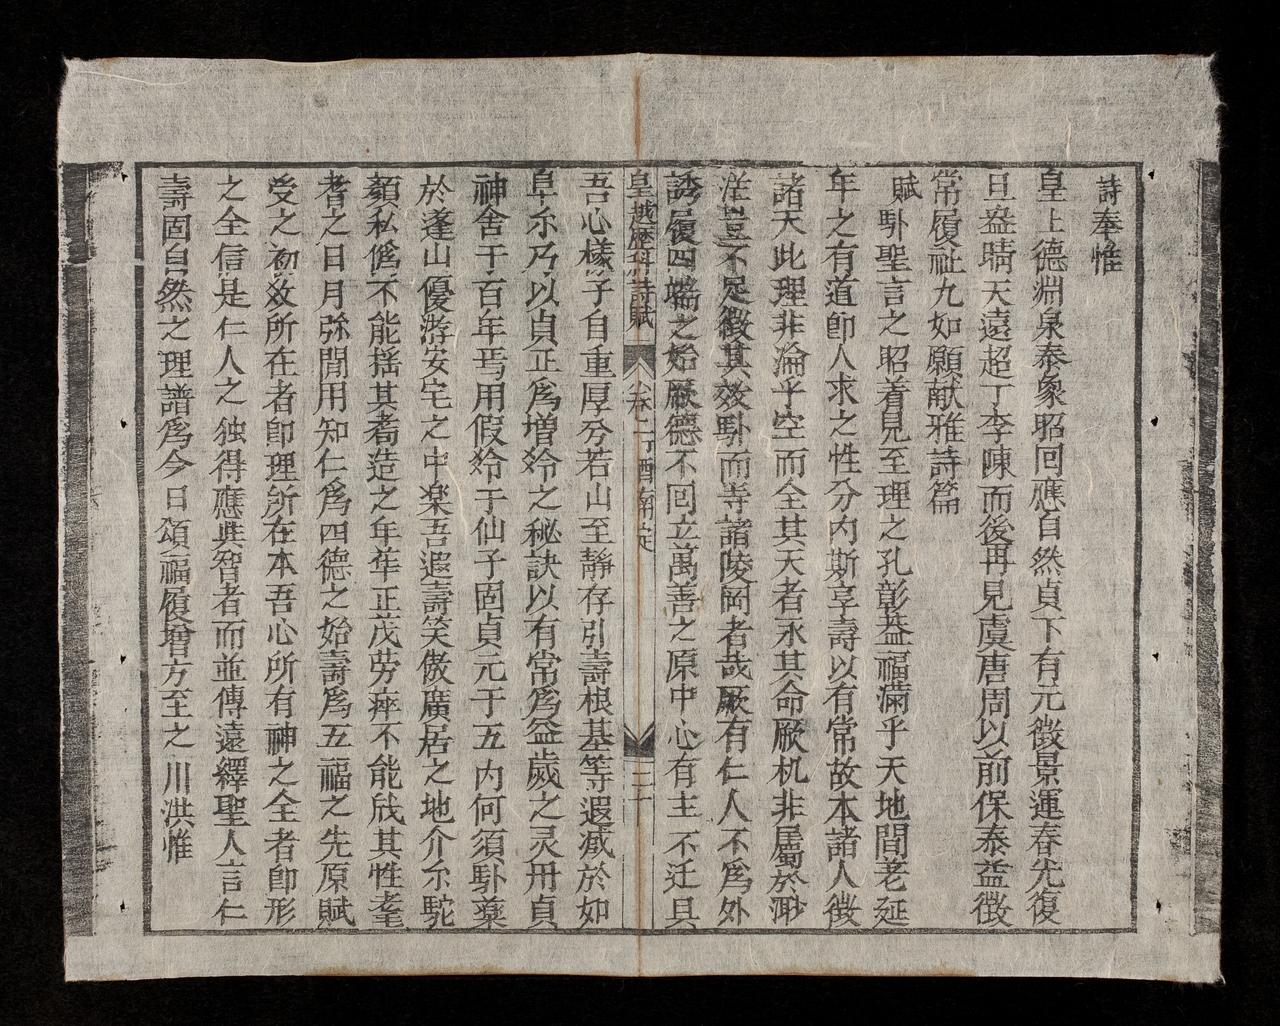 詩奉惟
皇上德淵泉泰象昭回應自然貞下有元徵景運春光復
旦益晴天遠超丁李陳而後再見虞唐周以前保泰益徵
常履祉九如願献雅詩篇
賦卧聖言之昭着見至理之孔彰益福滿乎天地間老延
年之有道卽人求之性分内斯享壽以有常故本諸人徵
諸天此理非淪乎空而全其天者永其命厥机非屬於渺
茫豈不足徵其效卧而寺諸陵岡者哉厥有仁人不爲外
誘履四端之始厥德不回立萬善之原中心有主不迁具
皇越歷科詩賦 卷二丁酉南定 二十
吾心樣子自重厚兮若山至静存引壽根基等遐减於如
阜尒乃以貞正爲增齡之秘訣以有常爲益歲之灵丹貞
神舍于百年焉用假齡于仙子固貞元于五内何須卧藥
於蓬山優游安宅之中楽吾遐壽笑傲廣居之地介尒駝
顏私僞不能揺其耈造之年年正茂劳瘁不能戕其性耄
耆之日月弥閒用知仁爲四德之始壽爲五福之先原賦
受之初效所在者卽理所在本吾心所有神之全者卽形
之全信是仁人之独得應與智者而並傳遠繹聖人言仁
壽固自然之理譜爲今日頌福履增方至之川洪惟